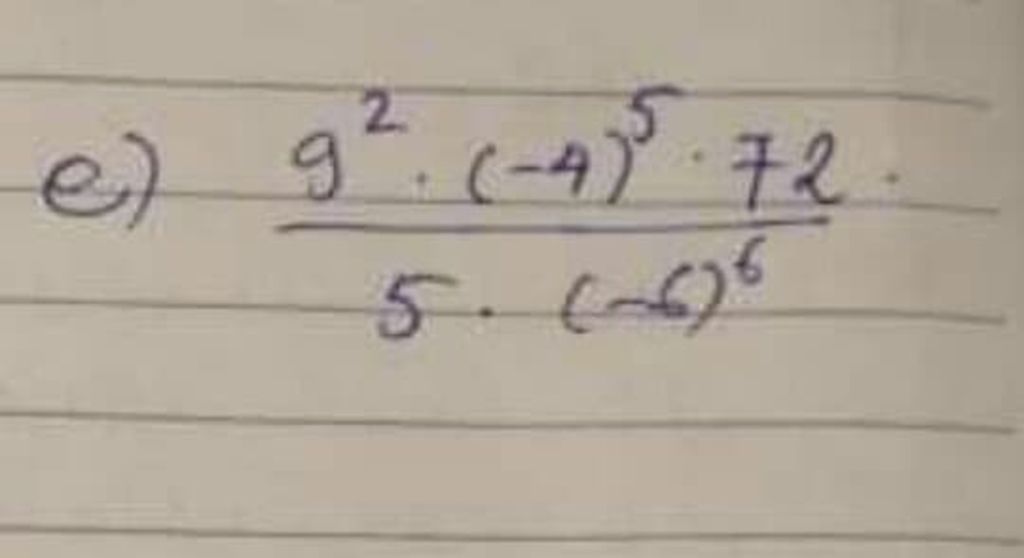 e) 9² · (-4)⁵ · 72 ·
5 · (-6)⁶